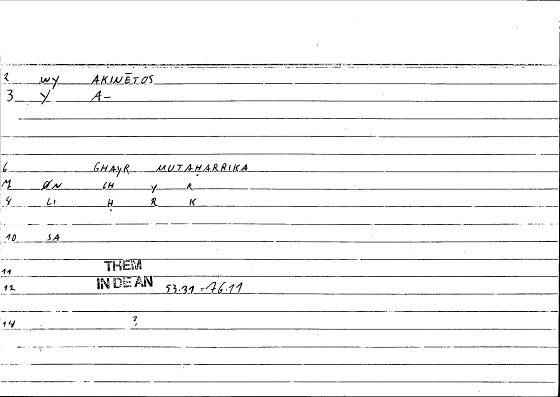 2 wy AKINĒTOS
3 y A-
6 GHAYR MUTAḤARRIKA
M ØN GH y R
9 LI Ḥ R K
10 SA
11 THEM
12 IN DE AN 53.31 = 76.11
14 ?